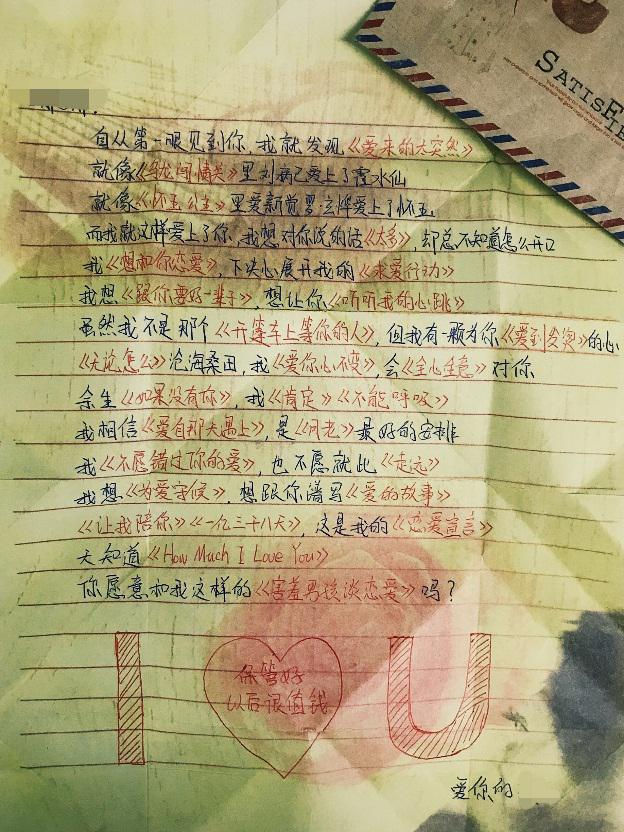 SATISFIE
自从第一眼见到你，我就发现《爱来的太突然》
就像《乌龙闯情关》里刘病已爱上了霍水仙
就像《怀玉公主》里爱新觉罗·玄烨爱上了怀玉
而我就这样爱上了你，我想对你说的话《太多》，却总不知道怎么开口
我《想和你恋爱》，下决心展开我的《求爱行动》
我想《跟你要好一辈子》想让你《听听我的心跳》
虽然我不是那个《开宝车上等你的人》，但我有一颗为你《爱到发烫》的心
《无论怎么》沧海桑田，我《爱你心不变》，会《全心全意》对你
余生《如果没有你》，我《肯定》《不能呼吸》
我相信《爱自那天遇上》，是《月老》最好的安排
我《不愿错过你的爱》，也不愿就此《走远》
我想《为爱守候》，想跟你谱写《爱的故事》
《让我陪你》《一亿三十八天》，这是我的《恋爱宣言》
天知道《How Much I Love You》
你愿意和我这样的《害羞男孩谈恋爱》吗？
I U
保管好
以后很值钱
爱你的